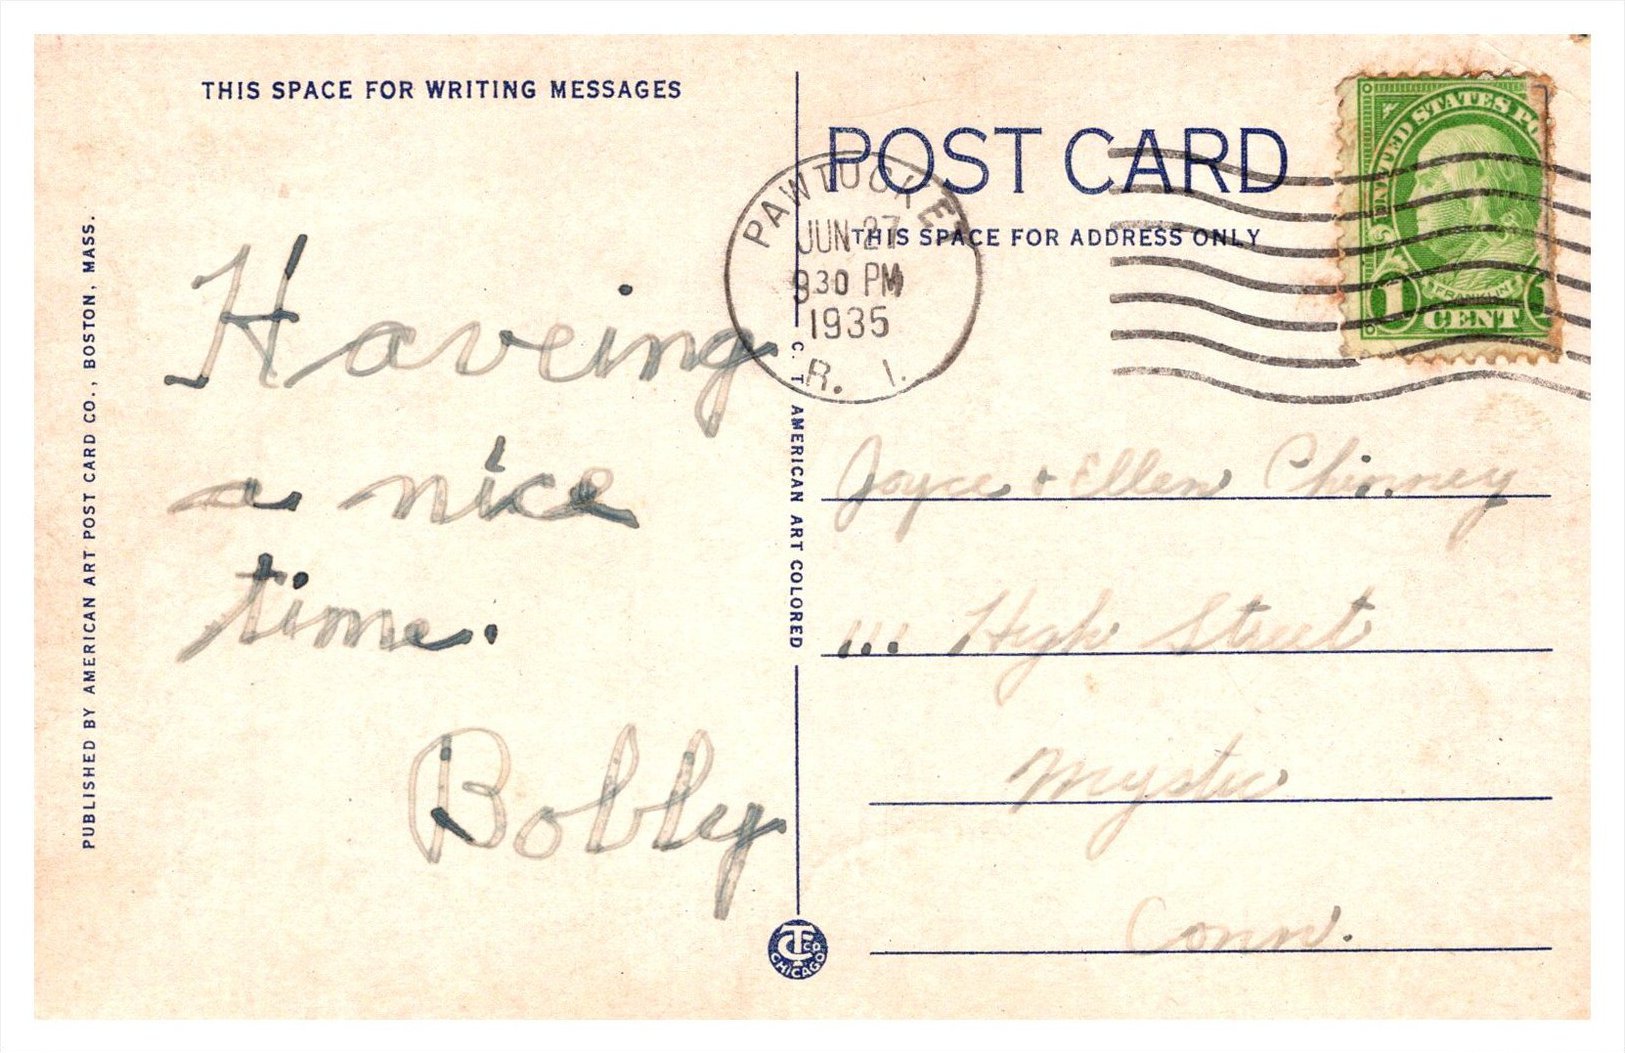 THIS SPACE FOR WRITING MESSAGES
POST CARD
THIS SPACE FOR ADDRESS ONLY
PUBLISHED BY AMERICAN ART POST CARD CO., BOSTON, MASS.
C. T. AMERICAN ART COLORED
PAWTUCKET
JUN 27
930 PM
1935
R. I.
UNITED STATES PO
FRANKLIN
1 CENT
Haveing
a nice
time.
Bobby
Joyce + Ellen Chinney
111 High Street
Mystic
Conn.
C T CO
CHICAGO